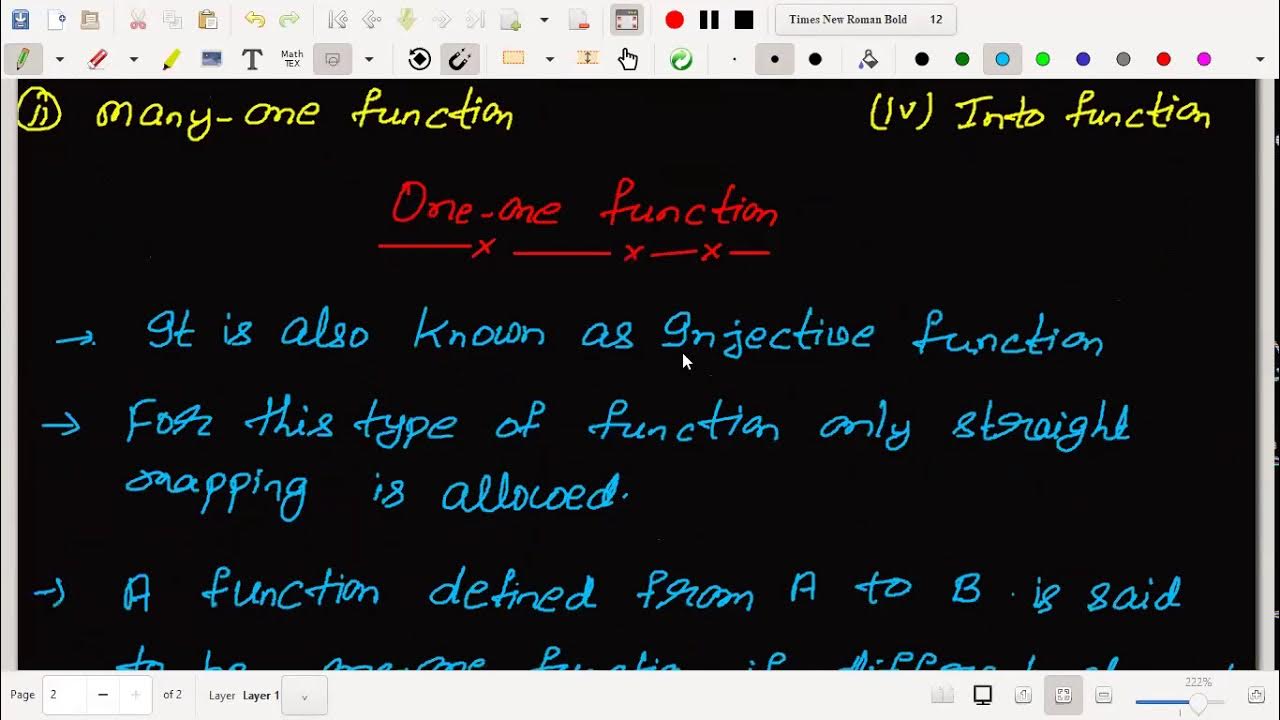 T Math TEX Times New Roman Bold 12
ii) many-one function (iv) Into function
One-one function
→ It is also known as Injective function
→ For this type of function only straight
mapping is allowed.
→ A function defined from A to B is said
to be one-one function if different
Page 2 of 2 Layer Layer 1 222%